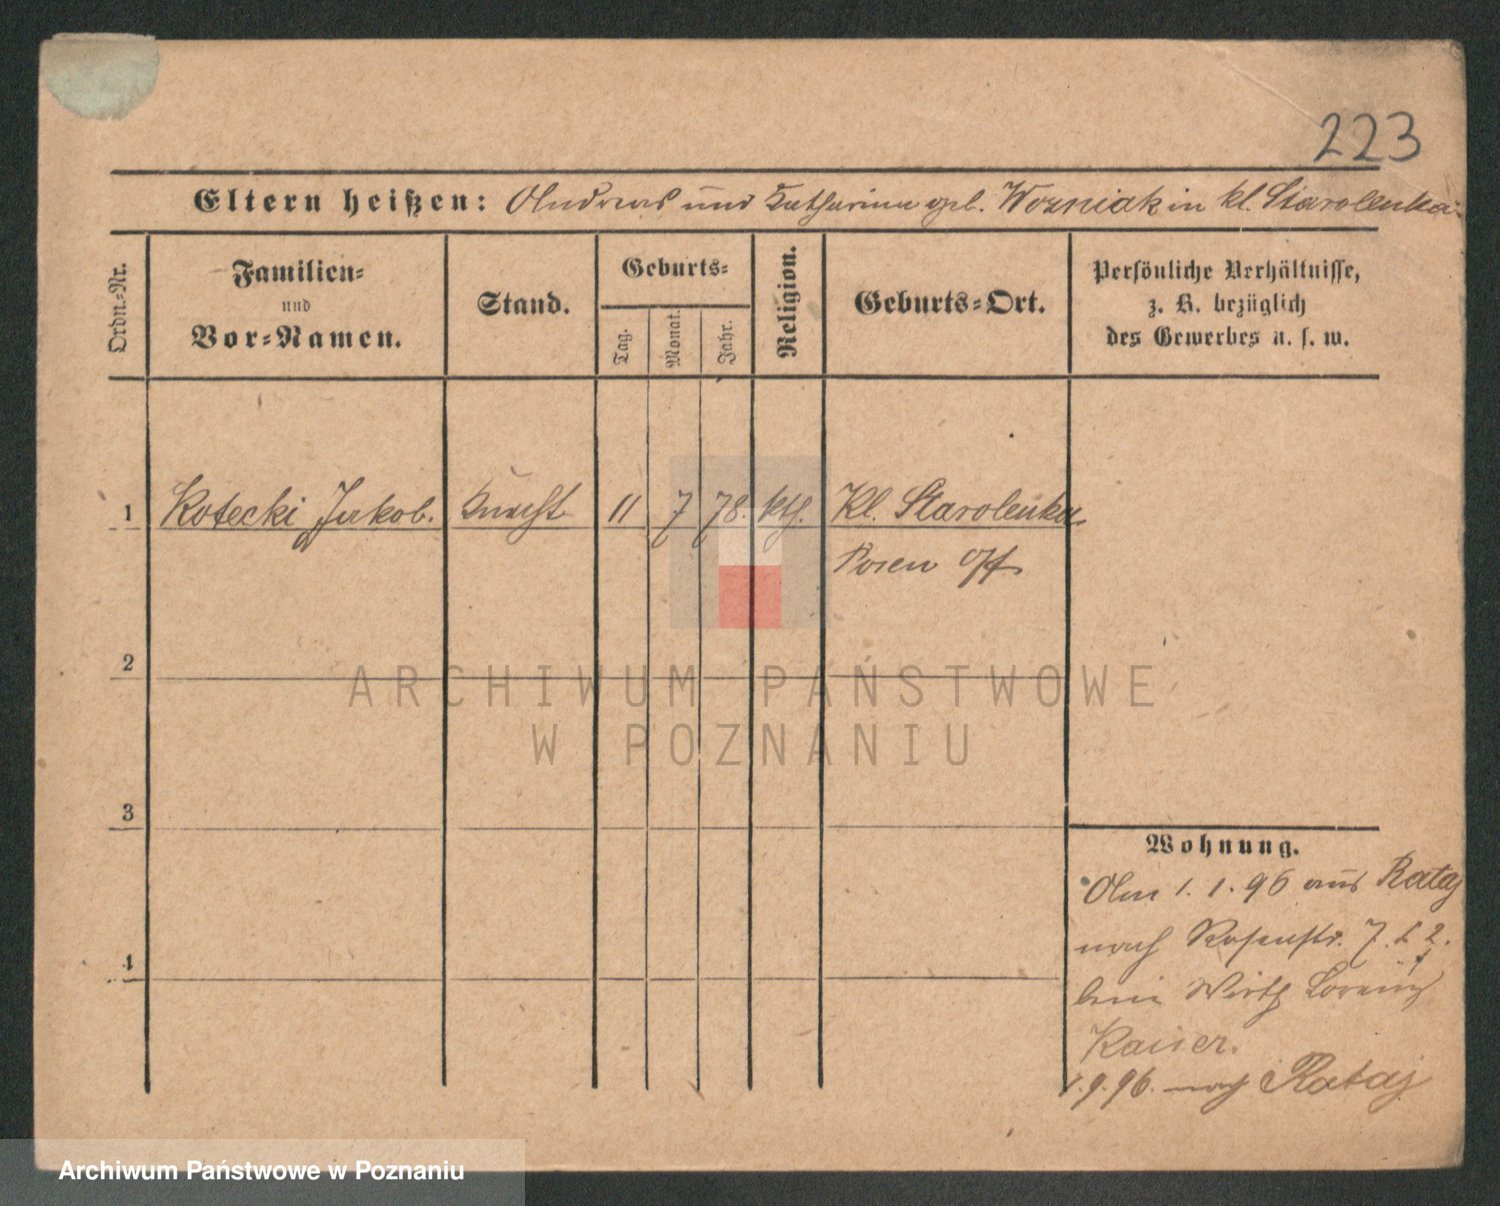 223
Eltern heißen: Andreas und Katharina geb. Wozniak in kl. Starolenka.
Ordn.=Nr.
Familien=
und
Vor=Namen.
Stand.
Geburts=
Tag.
Monat.
Jahr.
Religion.
Geburts=Ort.
Persönliche Verhältnisse,
z. B. bezüglich
des Gewerbes u. s. w.
1 Kotecki Jakob. Knecht 11 7 78. kth. Kl. Starolenka
Posen Ost
2
3
4
ARCHIWUM PAŃSTWOWE
W POZNANIU
Wohnung.
Am 1. 1. 96 aus Rataj
nach Rosenstr. 7.
beim Wirth Lorenz
Kaiser.
1.9.96. nach Rataj
Archiwum Państwowe w Poznaniu